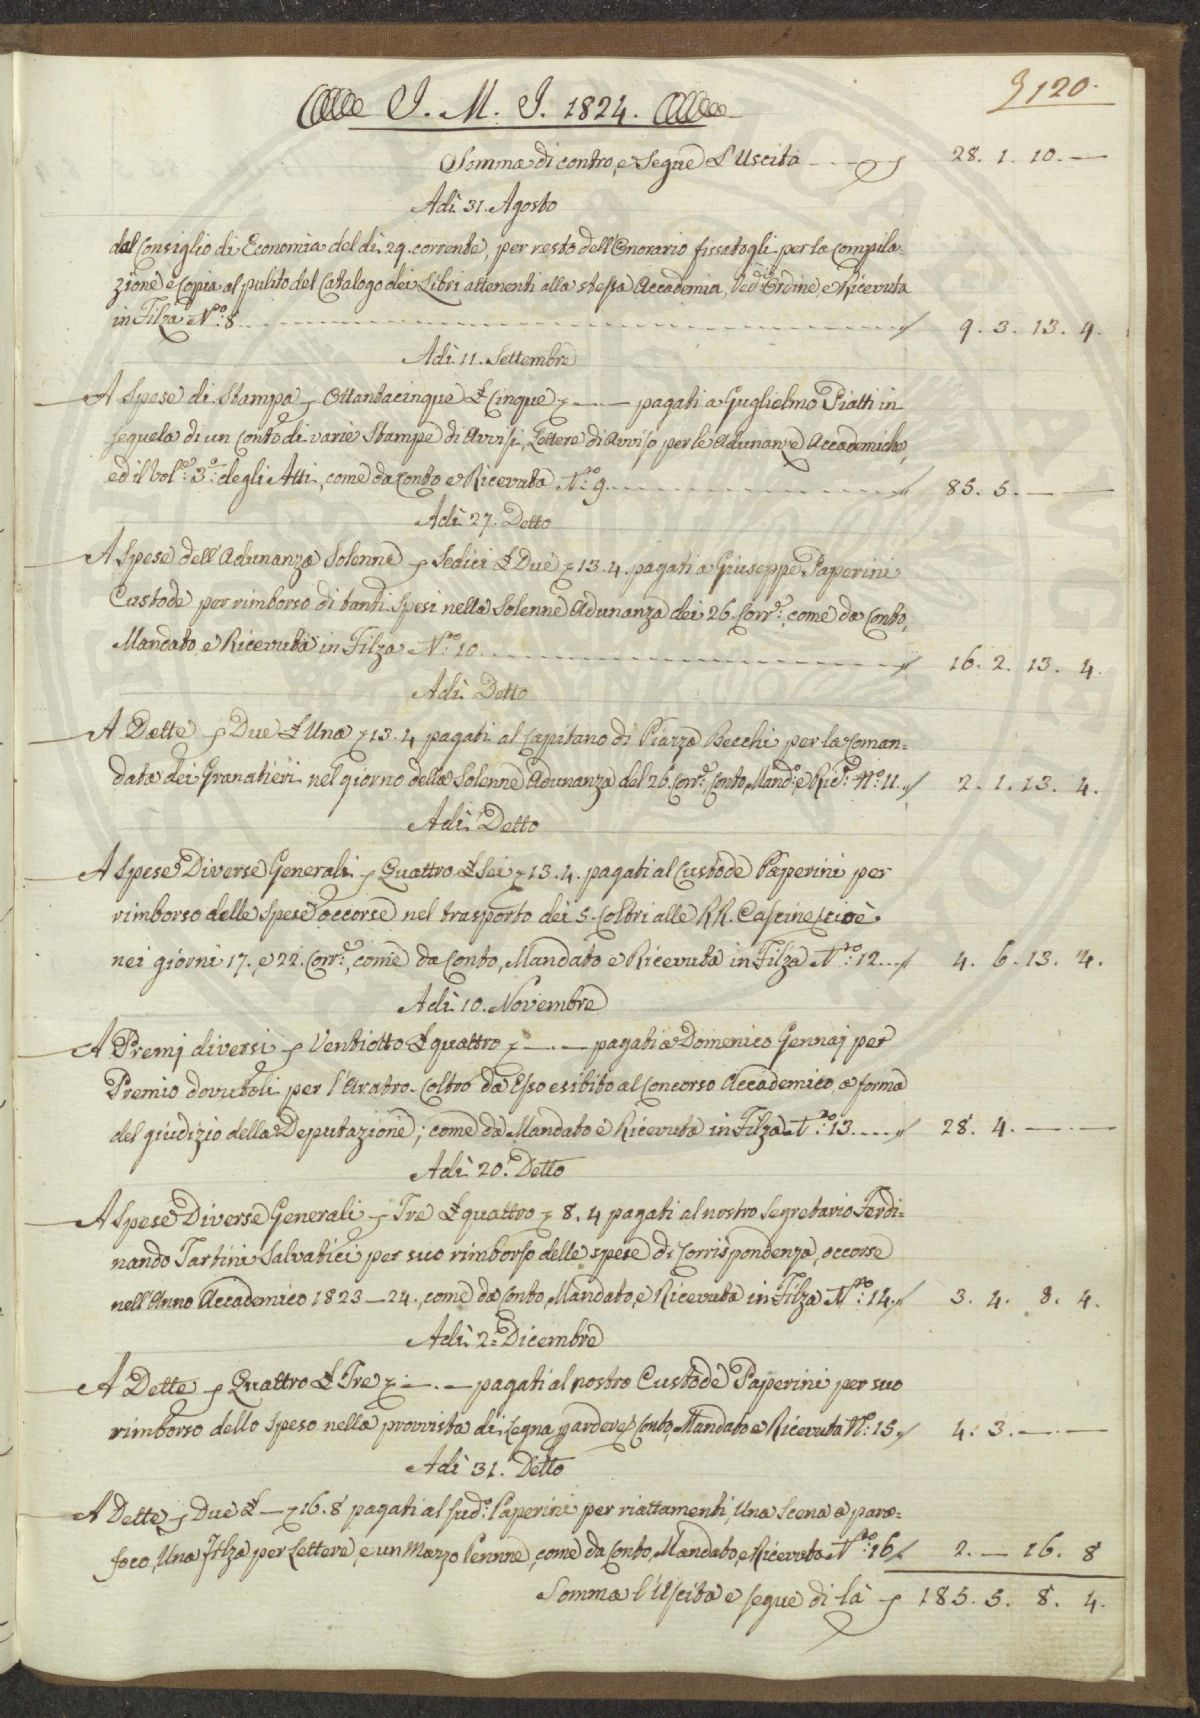 120.
J. M. J. 1824.
Somma di contro, e Segue L'Uscita 28. 1. 10. —
Adì 31. Agosto
dal Consiglio di Economia del dì 29. corrente, per resto dell'Onorario fissatogli per la compila-
zione e Copia al pulito del Catalogo dei Libri attenenti alla stessa Accademia, Ved.i Ordine, e Ricevuta
in Filza N.o 8 9. 3. 13. 4.
Adì 11. Settembre
A Spese di Stampa Ottantacinque £ Cinque — . — pagati a Guglielmo Piatti in
sequela di un Conto di varie Stampe di Avvisi, Lettere di Avviso per le Adunanze Accademiche,
ed il Vol.e 3.o degli Atti, come da Conto e Ricevuta N.o 9. 85. 5. — . —
Adì 27. Detto
A Spese dell'Adunanza Solenne Sedici £ Due 13. 4. pagati a Giuseppe Paperini
Custode per rimborso di tanti Spesi nella Solenne Adunanza dei 26. Corr.e, come da Conto,
Mandato, e Ricevuta in Filza N.o 10 16. 2. 13. 4.
Adì Detto
A Dette Due £ Una 13. 4 pagati al Capitano di Piazza Becchi per la coman=
data dei Granatieri nel giorno della Solenne Adunanza del 26. Corr.e, Conto, Mand.o, e Ric.a N.o 11. 2. 1. 13. 4.
Adì Detto
A Spese Diverse Generali Quattro £ Sei 13. 4. pagati al Custode Paperini per
rimborso delle Spese occorse nel trasporto dei 5. Coltri alle RR. Cascine, cioè
nei giorni 17. e 22. Corr.e, come da Conto, Mandato e Ricevuta in Filza N.o 12. 4. 6. 13. 4.
Adì 10. Novembre
A Premj diversi Ventiotto £ quattro — . — pagati a Domenico Gennaj per
Premio dovutoli per l'Aratro-Coltro da Esso esibito al Concorso Accademico, a forma
del giudizio della Deputazione; come da Mandato e Ricevuta in Filza N.o 13. 28. 4. — . —
Adì 20. Detto
A Spese Diverse Generali Tre £ quattro 8. 4 pagati al nostro Segretario Ferdi=
nando Tartini Salvatici per suo rimborso delle spese di Corrispondenza, occorse
nell'Anno Accademico 1823—24., come da Conto, Mandato, e Ricevuta in Filza N.o 14. 3. 4. 8. 4.
Adì 2. Dicembre
A Dette Quattro £ Tre — . — pagati al nostro Custode Paperini per suo
rimborso dello Speso nella provvista di Legna p ardere, Conto, Mandato e Ricevuta N.o 15. 4. 3. — . —
Adì 31. Detto
A Dette Due £ — 16. 8 pagati al sud.o Paperini per riattamenti, Una Scena a para=
foco, Una Filza per Lettere, e un Mazzo Penne, come da Conto, Mandato, e Ricevuta N.o 16 2. — 16. 8
Somma l'Uscita e segue di là 185. 5. 8. 4.